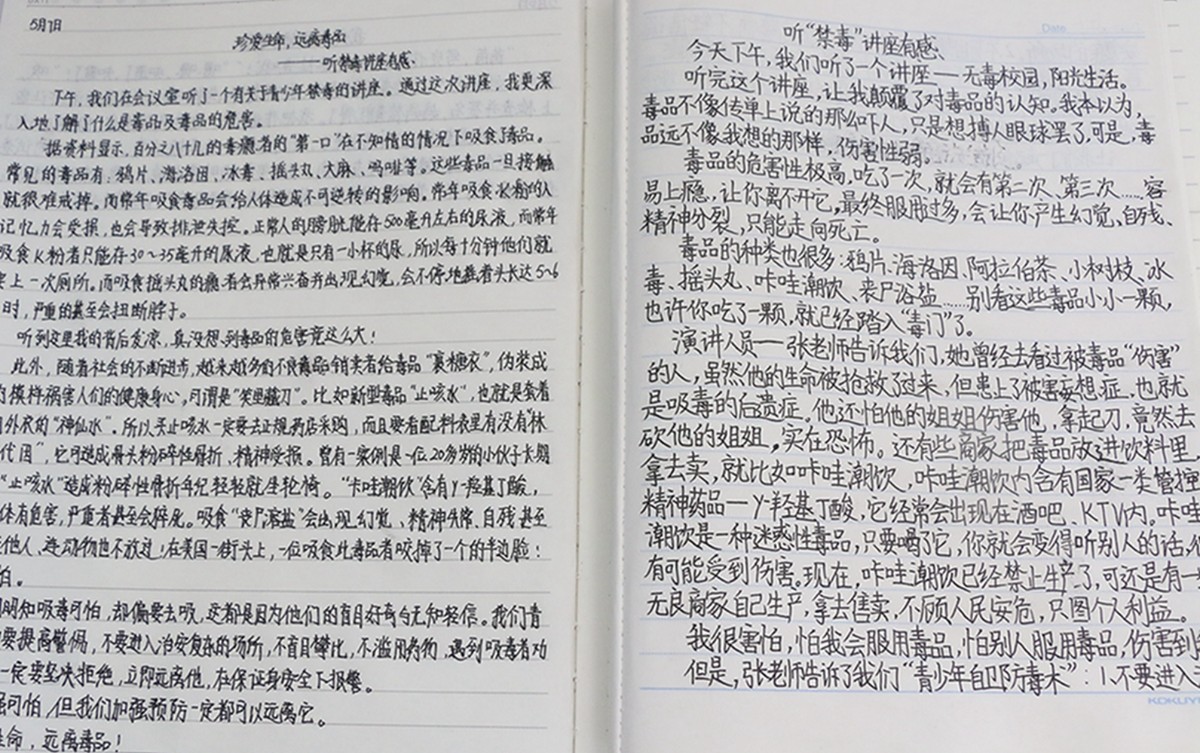 5月7日
珍爱生命，远离毒品
——听禁毒讲座有感
下午，我们在会议室听了一个有关于青少年禁毒的讲座。通过这次讲座，我更深
入地了解了什么是毒品及毒品的危害。
据资料显示，百分之八十几的毒瘾者的“第一口”在不知情的情况下吸食了毒品。
常见的毒品有：鸦片、海洛因、冰毒、摇头丸、大麻、吗啡等。这些毒品一旦接触
就很难戒掉。而常年吸食毒品会给人体造成不可逆转的影响。常年吸食K粉的人
记忆力会受损，也会导致排泄失控。正常人的膀胱能存500毫升左右的尿液，而常年
吸食K粉者只能存30～35毫升的尿液，也就是只有一小杯的尿，所以每十分钟他们就
要上一次厕所。而吸食摇头丸的瘾者会异常兴奋并出现幻觉，会不停地摇着头长达5~6
时，严重的甚至会扭断脖子。
听到这里我的背后发凉，真没想到毒品的危害竟这么大！
此外，随着社会的不断进步，越来越多的不良毒品销卖者给毒品“裹糖衣”，伪装成
模样祸害人们的健康身心，可谓是“笑里藏刀”。比如新型毒品“止咳水”，也就是套着
外衣的“神仙水”。所以买止咳水一定要去正规药店采购，而且要看配料表里有没有“林
代因”，它可造成骨头粉碎性骨折，精神受损。曾有一案例是一位20多岁的小伙子长期
“止咳水”造成粉碎性骨折年纪轻轻就坐轮椅。“咔哇潮饮”含有γ-羟基丁酸，
体有危害，严重者甚至会猝死。吸食“丧尸浴盐”会出现幻觉、精神失常、自残甚至
他人、连动物也不放过！在美国一街头上，一位吸食此毒品者咬掉了一个的半边脸！
怕。
明知吸毒可怕，却偏要去吸，这都是因为他们的盲目好奇与无知轻信。我们青
要提高警惕，不要进入治安复杂的场所，不盲目攀比，不滥用药物，遇到吸毒者劝
一定要坚决拒绝，立即远离他，在保证身安全下报警。
可怕，但我们加强预防一定都可以远离它。
生命，远离毒品！
听“禁毒”讲座有感、
今天下午，我们听了一个讲座——无毒校园，阳光生活。
听完这个讲座，让我颠覆了对毒品的认知。我本以为，
毒品不像传单上说的那么吓人，只是想搏人眼球罢了，可是，毒
品远不像我想的那样，伤害性弱。
毒品的危害性极高，吃了一次，就会有第二次、第三次……容
易上瘾，让你离不开它，最终服用过多，会让你产生幻觉、自残、
精神分裂，只能走向死亡。
毒品的种类也很多：鸦片、海洛因、阿拉伯茶、小树枝、冰
毒、摇头丸、咔哇潮饮、丧尸浴盐……别看这些毒品小小一颗，
也许你吃了一颗，就已经踏入“毒门”了。
演讲人员——张老师告诉我们，她曾经去看过被毒品“伤害”
的人，虽然他的生命被抢救了过来，但患上了被害妄想症，也就
是吸毒的后遗症。他还怕他的姐姐伤害他，拿起刀，竟然去
砍他的姐姐，实在恐怖。还有些商家把毒品放进饮料里，
拿去卖，就比如咔哇潮饮，咔哇潮饮内含有国家一类管理
精神药品——γ羟基丁酸，它经常会出现在酒吧、KTV内。咔哇
潮饮是一种迷惑性毒品，只要喝了它，你就会变得听别人的话，
有可能受到伤害。现在，咔哇潮饮已经禁止生产了，可还是有一
无良商家自己生产，拿去售卖，不顾人民安危，只图个人利益。
我很害怕，怕我会服用毒品，怕别人服用毒品，伤害到
但是，张老师告诉了我们“青少年自卫防毒术”：1.不要进入
Date
KOKUYO